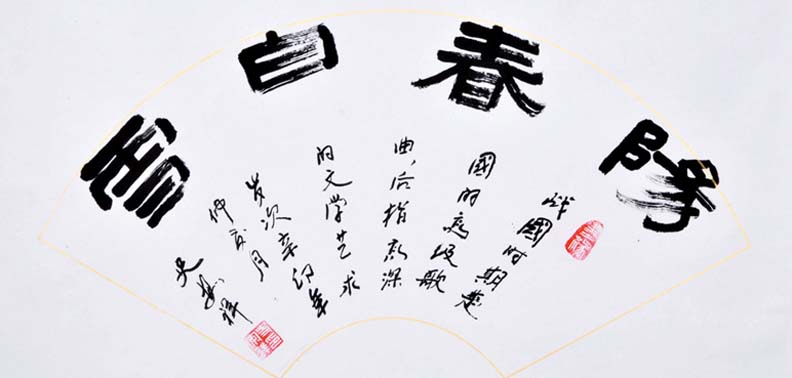 陽春白雪
战國时期楚
國的高级歌
曲,后指高深
的文学艺术
岁次辛卯年
仲夏月